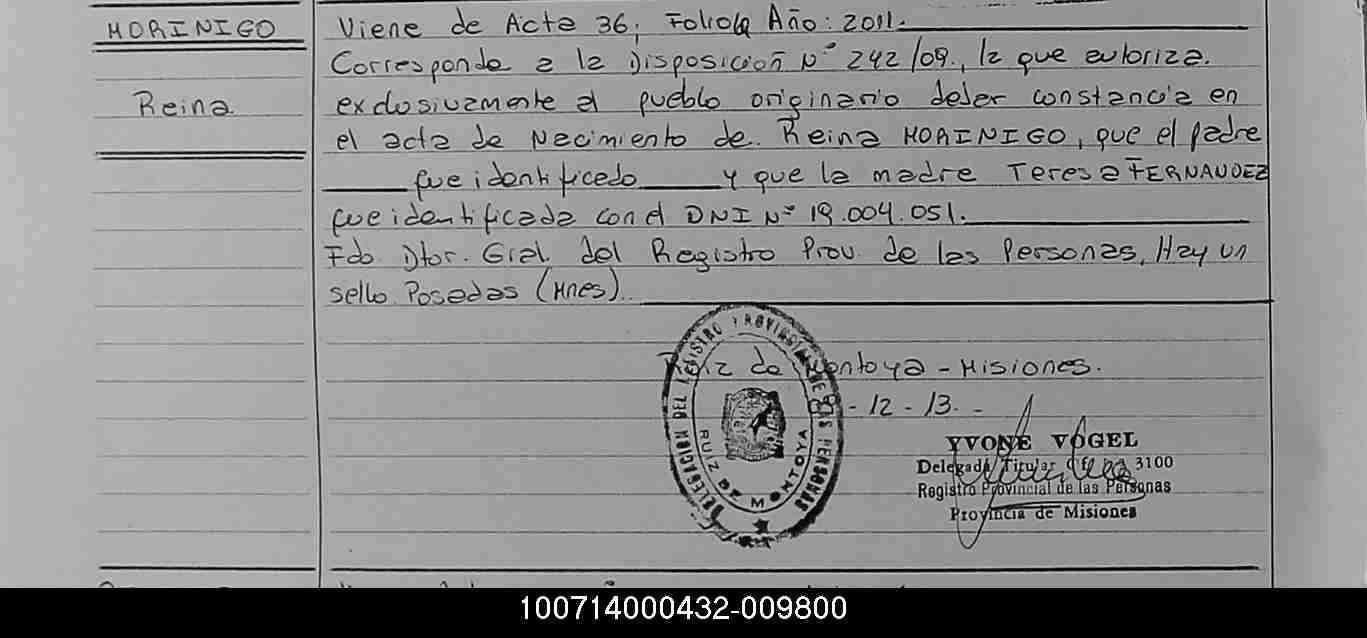 MORINIGO
Reina.
Viene de Acta 36; Folio Año: 2011.
Corresponde a la Disposición Nº 242/09., la que autoriza.
exclusivamente al pueblo originario dejar constancia en
el acta de Nacimiento de. Reina MORINIGO, que el padre
fue identificado y que la madre Teresa FERNANDEZ
fue identificada con el DNI Nº 19.004.051.
Fdo. Dtor. Gral. del Registro Prov. de las Personas, Hay un
sello. Posadas (Mnes).
Ruiz de Montoya - Misiones.
- 12 - 13. -
DELEGACION DEL REGISTRO PROVINCIAL DE LAS PERSONAS
RUIZ DE MONTOYA
YVONE VOGEL
Delegada Titular 3100
Registro Provincial de las Personas
Provincia de Misiones
100714000432-009800